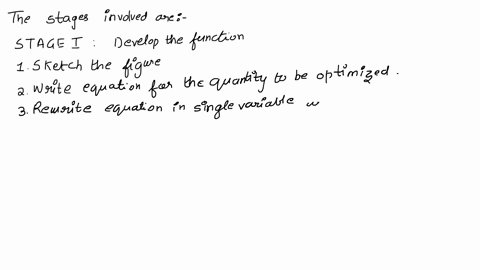 The stages involved are:-
STAGE I : Develop the function
1. Sketch the figure
2. Write equation for the quantity to be optimized.
3. Rewrite equation in single variable